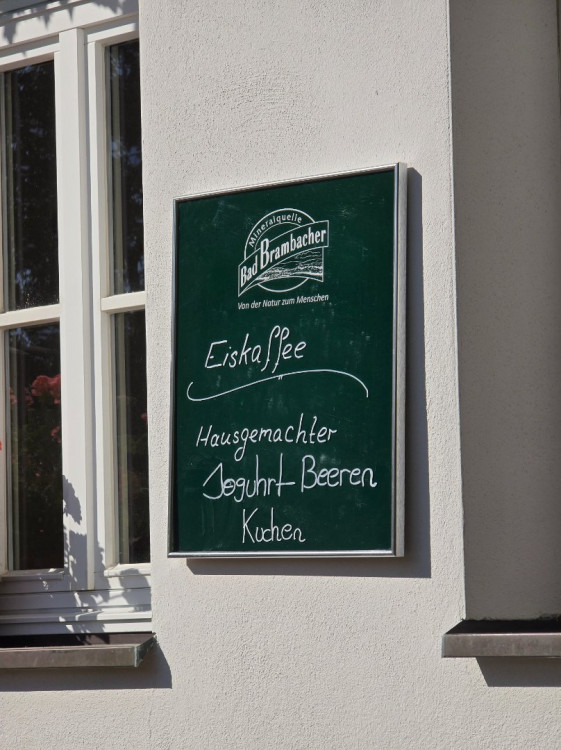 Mineralquelle
Bad Brambacher
Von der Natur zum Menschen
Eiskaffee
Hausgemachter
Joguhrt-Beeren
Kuchen